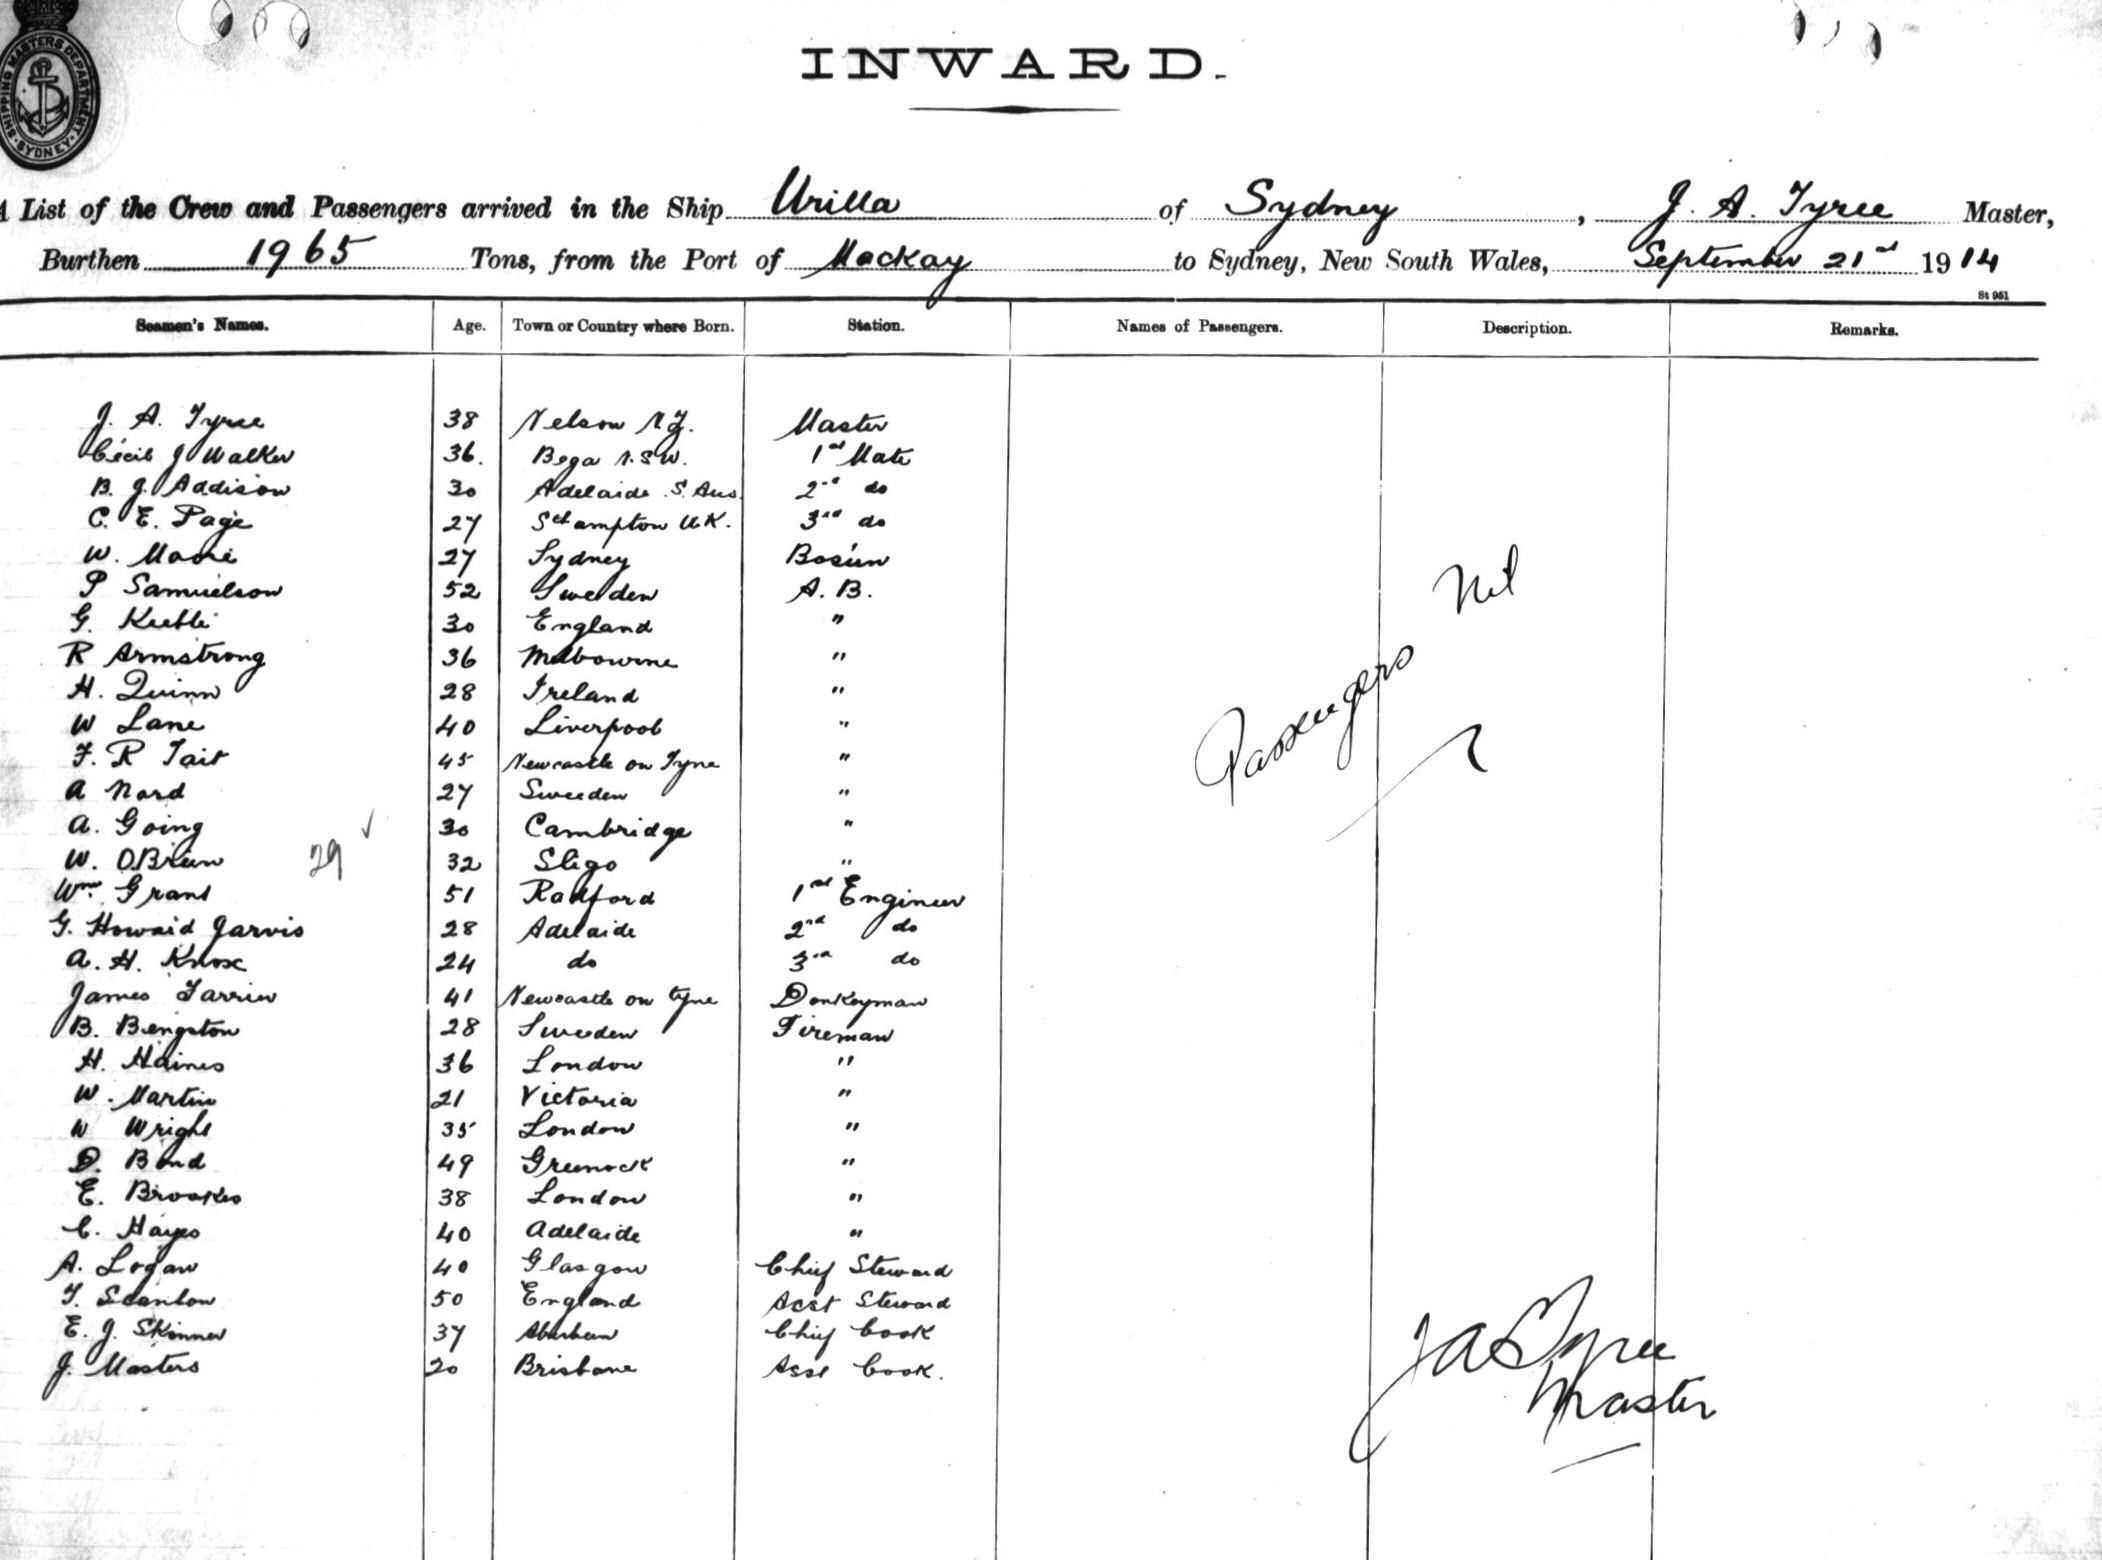 SHIPPING MASTERS DEPARTMENT. SYDNEY
INWARD.
A List of the Crew and Passengers arrived in the Ship Urilla of Sydney, J. A. Tyree Master,
Burthen 1965 Tons, from the Port of Mackay to Sydney, New South Wales, September 21st 1914
St 951
Seamen's Names. Age. Town or Country where Born. Station. Names of Passengers. Description. Remarks.
J. A. Tyree 38 Nelson N.Z. Master
Cecil J Walker 36. Bega N.S.W. 1st Mate
B. J. Addison 30 Adelaide S. Aus. 2nd do
C. E. Page 27 Sthampton U.K. 3rd do
W. Moore 27 Sydney Bosun
P Samuelson 52 Sweden A. B.
G. Keeble 30 England "
R Armstrong 36 Melbourne "
H. Quinn 28 Ireland "
W Lane 40 Liverpool "
F. R Tait 45 Newcastle on Tyne "
A Nord 27 Sweeden "
A. Going 30 Cambridge "
W. OBrien 29 ✓ 32 Sligo "
Wm Grant 51 Radford 1st Engineer
G. Howard Jarvis 28 Adelaide 2nd do
A. H. Knox 24 do 3rd do
James Farrier 41 Newcastle on tyne Donkeyman
B. Bengston 28 Sweeden Fireman
H. Haines 36 London "
W. Martin 21 Victoria "
W Wright 35 London "
D. Bond 49 Greenock "
E. Brookes 38 London "
C. Hayes 40 Adelaide "
A. Logan 40 Glasgow Chief Steward
T. Scanlon 50 England Asst Steward
E. J. Skinner 37 Aberdeen Chief Cook
J. Masters 20 Brisbane Asst Cook.
Passengers Nil
JA Tyree
Master